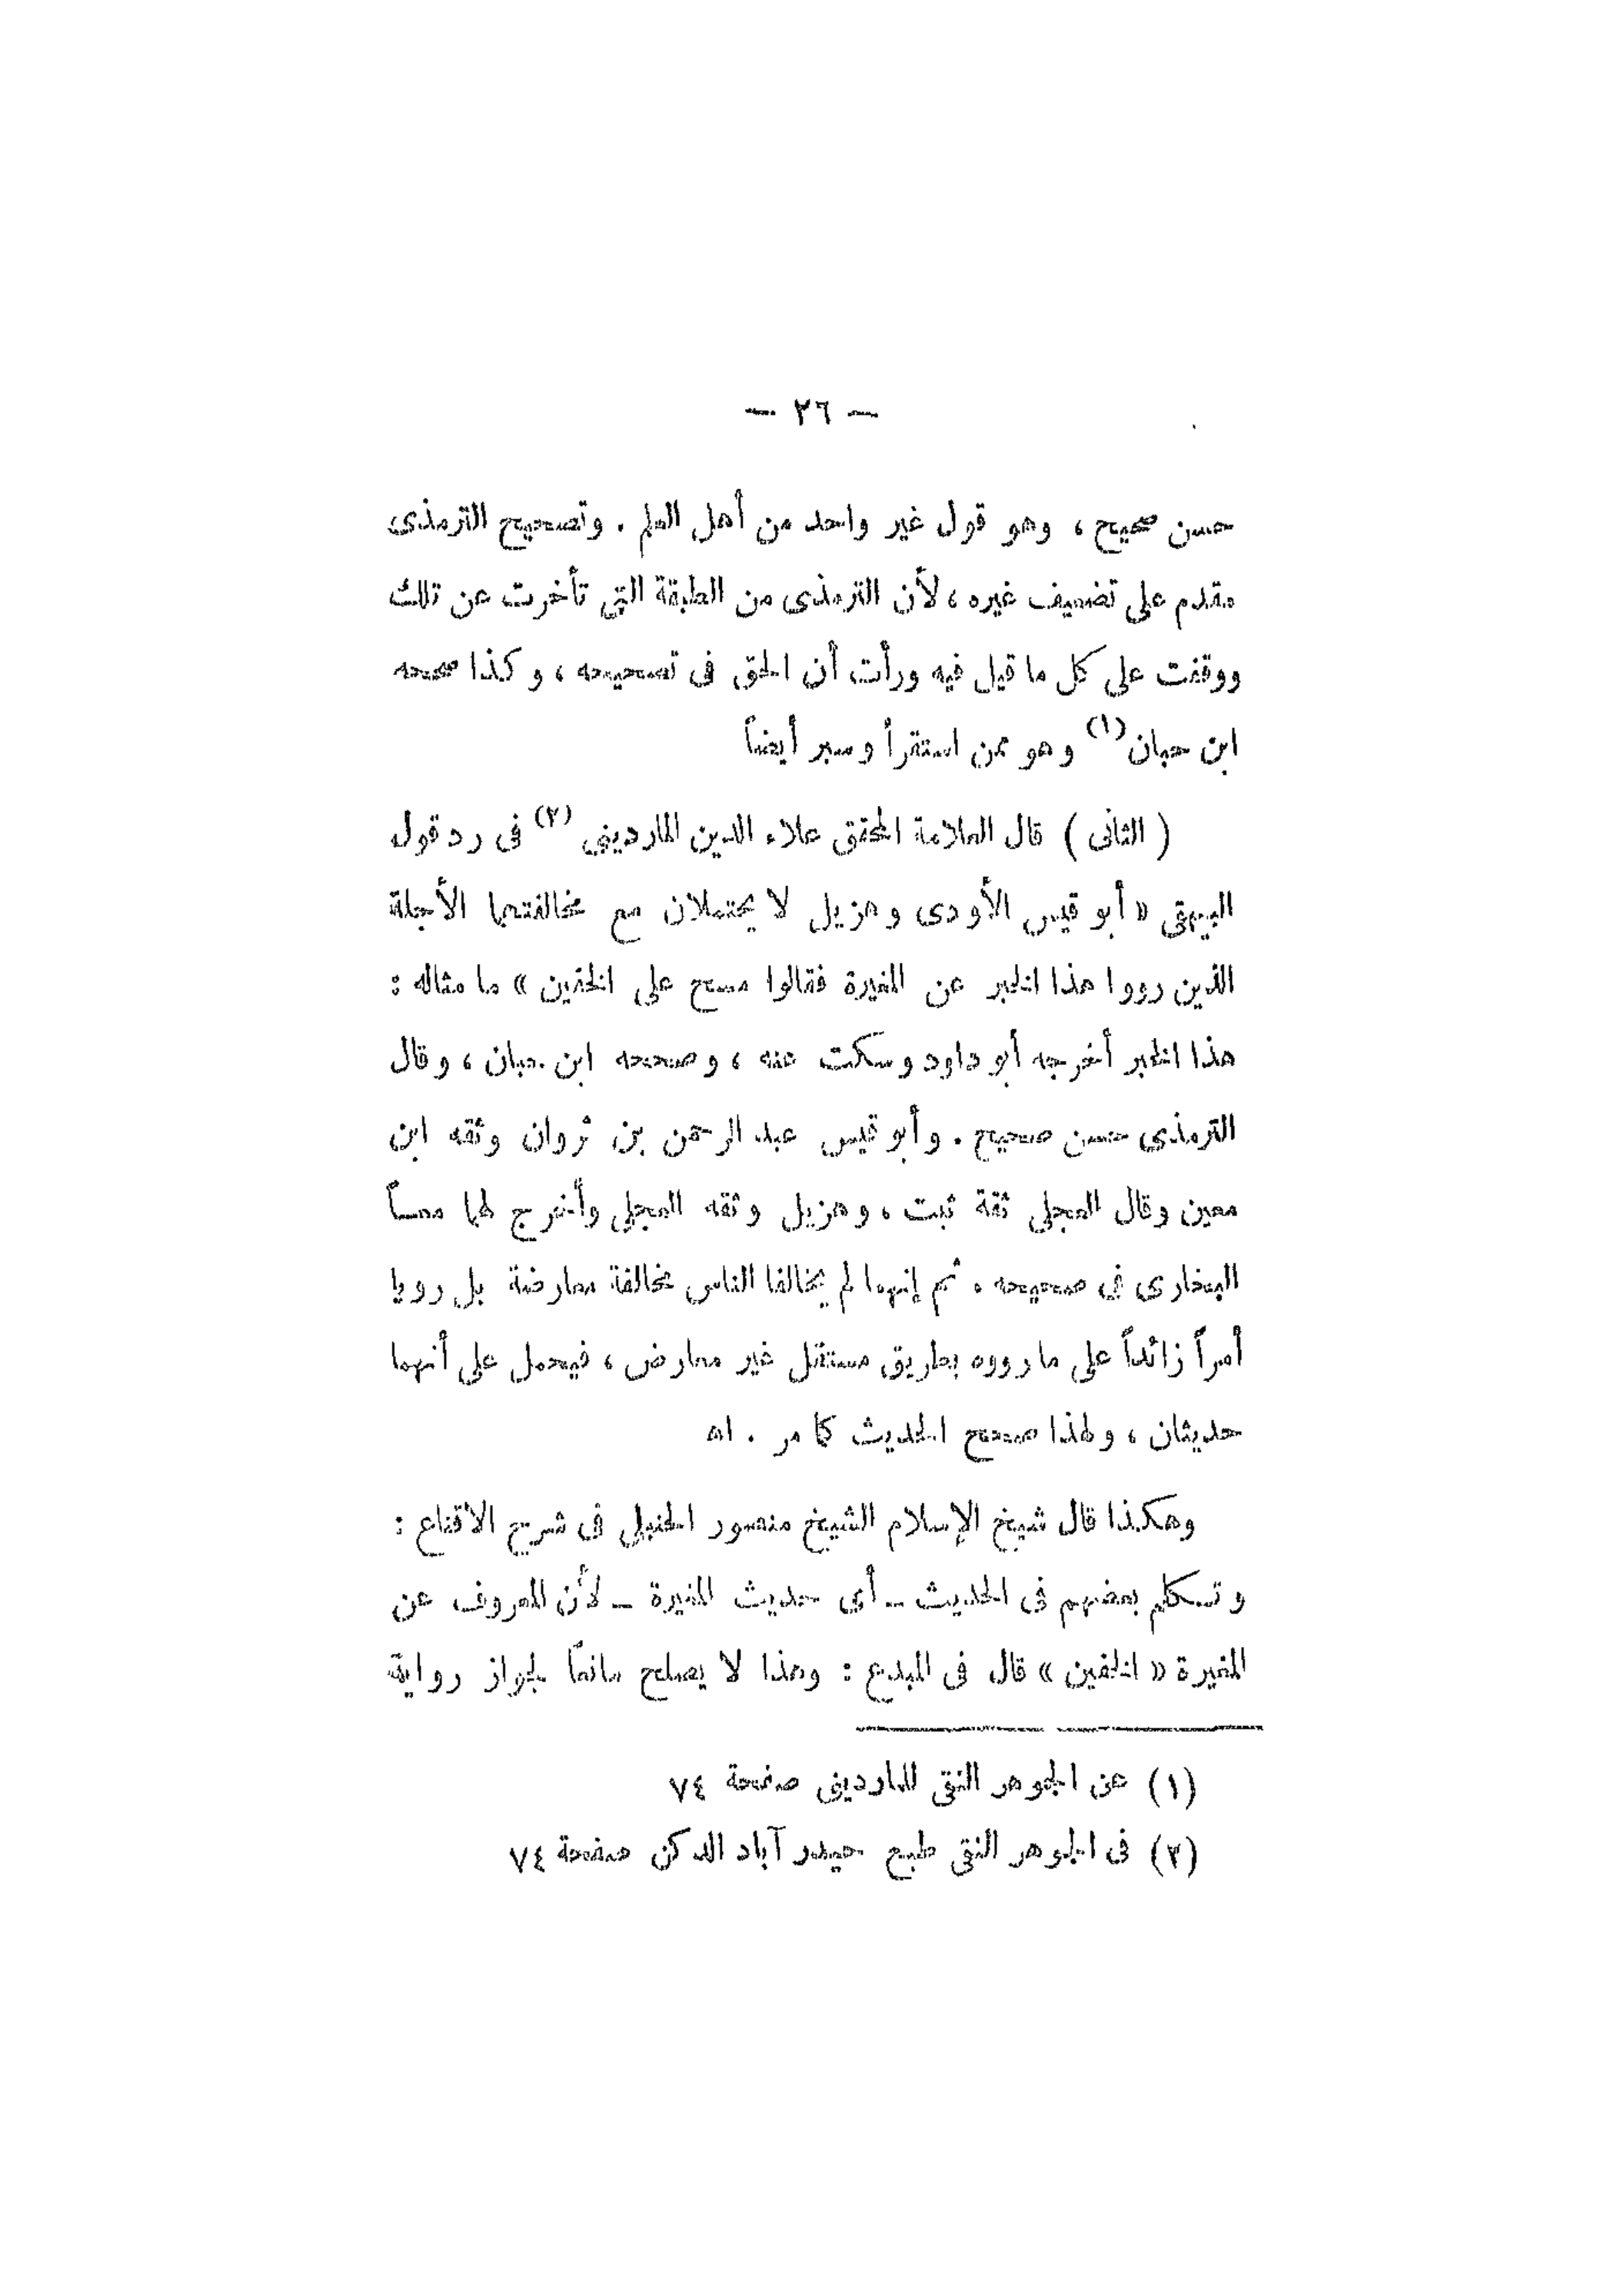 — ٢٦ —
حسن صحيح ، وهو قول غير واحد من أهل العلم . وتصحيح الترمذى
مقدم على تضعيف غيره ، لأن الترمذى من الطبقة التي تأخرت عن تلك
ووقفت على كل ما قيل فيه ورأت أن الحق فى تصحيحه ، وكذا صححه
ابن حبان (١) وهو ممن استقرأ وسبر أيضاً
( الثانى ) قال العلامة المحقق علاء الدين الماردينى (٢) فى رد قول
البيهقى « أبو قيس الأودى وهزيل لا يحتملان مع مخالفتهما الأجلة
الذين رووا هذا الخبر عن المغيرة فقالوا مسح على الخفين » ما مثاله :
هذا الخبر أخرجه أبو داود وسكت عنه ، وصححه ابن حبان ، وقال
الترمذى حسن صحيح . وأبو قيس عبد الرحمن بن ثروان وثقه ابن
معين وقال العجلى ثقة ثبت ، وهزيل وثقه العجلى وأخرج لهما معـاً
البخارى فى صحيحه . ثم إنهما لم يخالفا الناس مخالفة معارضة بل رويا
أمراً زائداً على ما رووه بطريق مستقل غير معارض ، فيحمل على أنهما
حديثان ، ولهذا صحح الحديث كما مر . اه
وهكذا قال شيخ الإسلام الشيخ منصور الحنبلى فى شرح الاقناع :
وتكلم بعضهم فى الحديث ـ أى حديث المغيرة ـ لأن المعروف عن
المغيرة « الخفين » قال فى المبدع : وهذا لا يصلح مانعاً لجواز رواية
(١) عن الجوهر النقى للماردينى صفحة ٧٤
(٢) فى الجوهر النقى طبع حيدر آباد الدكن صفحة ٧٤